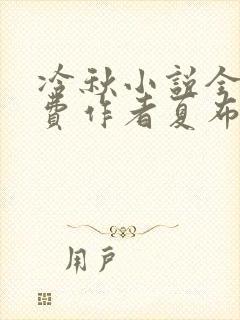 冷秋小説全
費作者夏布
用戶